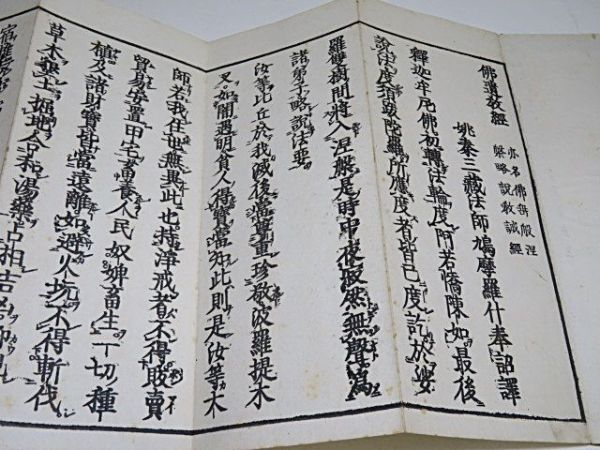 佛遺教經
亦名佛垂般涅
槃略說教誡經
姚秦三藏法師鳩摩羅什奉詔譯
釋迦牟尼佛初轉法輪度阿若憍陳如最後
說法度須跋陀羅所應度者皆已度訖於娑
羅雙樹間將入涅槃是時中夜寂然無聲為
諸弟子略說法要
汝等比丘於我滅後當尊重珍敬波羅提木
叉如闇遇明貧人得寶當知此則是汝等大
師若我住世無異此也持淨戒者不得販賣
貿易安置田宅畜養人民奴婢畜生一切種
植及諸財寶皆當遠離如避火坑不得斬伐
草木墾土掘地合和湯藥占相吉凶仰觀